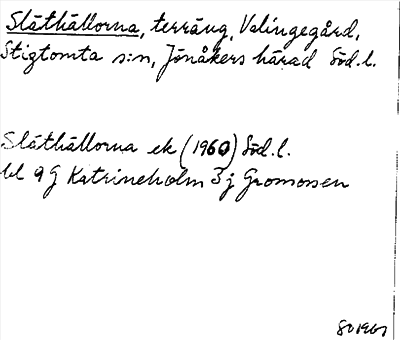 Släthällorna, terräng, Valingegård,
Stigtomta s:n, Jönåkers härad Söd.l.
Släthällorna ek (1960) Söd.l.
bl 9 G Katrineholm 3 j Gromossen